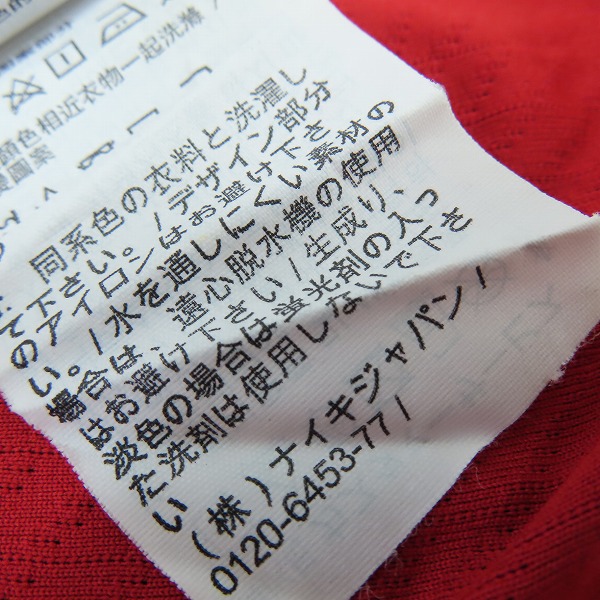 顏色相近衣物一起洗滌
同系色の衣料と洗濯し
て下さい。/デザイン部分
のアイロンはお避け下さ
い。/水を通しにくい素材の
場合は、遠心脱水機の使用
はお避け下さい/生成り、
淡色の場合は蛍光剤の入っ
た洗剤は使用しないで下さ
い
(株)ナイキジャパン/
0120-6453-77/